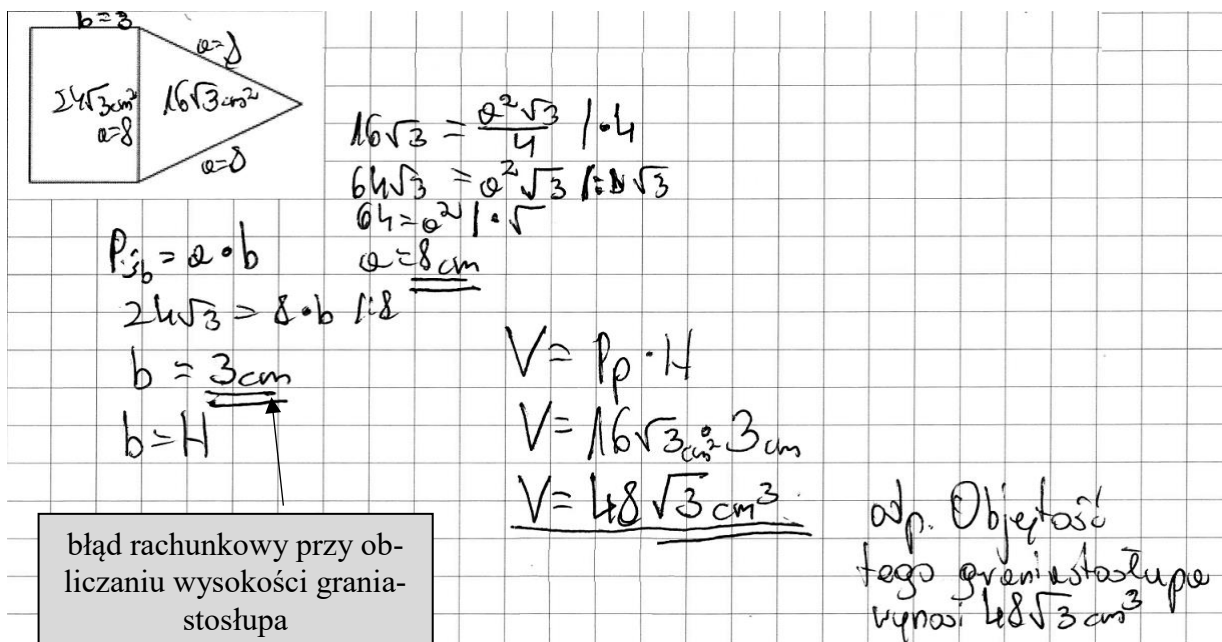 b=3
a=8
24√3 cm²
16√3 cm²
a=8
a=8
16√3 = a²√3/4 |·4
64√3 = a²√3 |: √3
64 = a² |·√
a = 8 cm
Pśb = a·b
24√3 = 8·b |:8
b = 3cm
b = H
V = Pp · H
V = 16√3 cm² · 3 cm
V = 48√3 cm³
odp. Objętość
tego graniastosłupa
wynosi 48√3 cm³
błąd rachunkowy przy ob-
liczaniu wysokości grania-
stosłupa